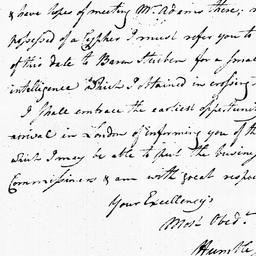 & have hopes of meeting Mr. Adams there; n
possessed of a Cypher I must refer you to
of this date to Baron Steuben for a smal
intelligence which I obtained in crossing
I shall embrace the earliest opportunit
arrival in London of informing you of th
which I may be able to put the busines
Commissioners & am with great respec
Your Excellency's
Most Obedt.
Humble